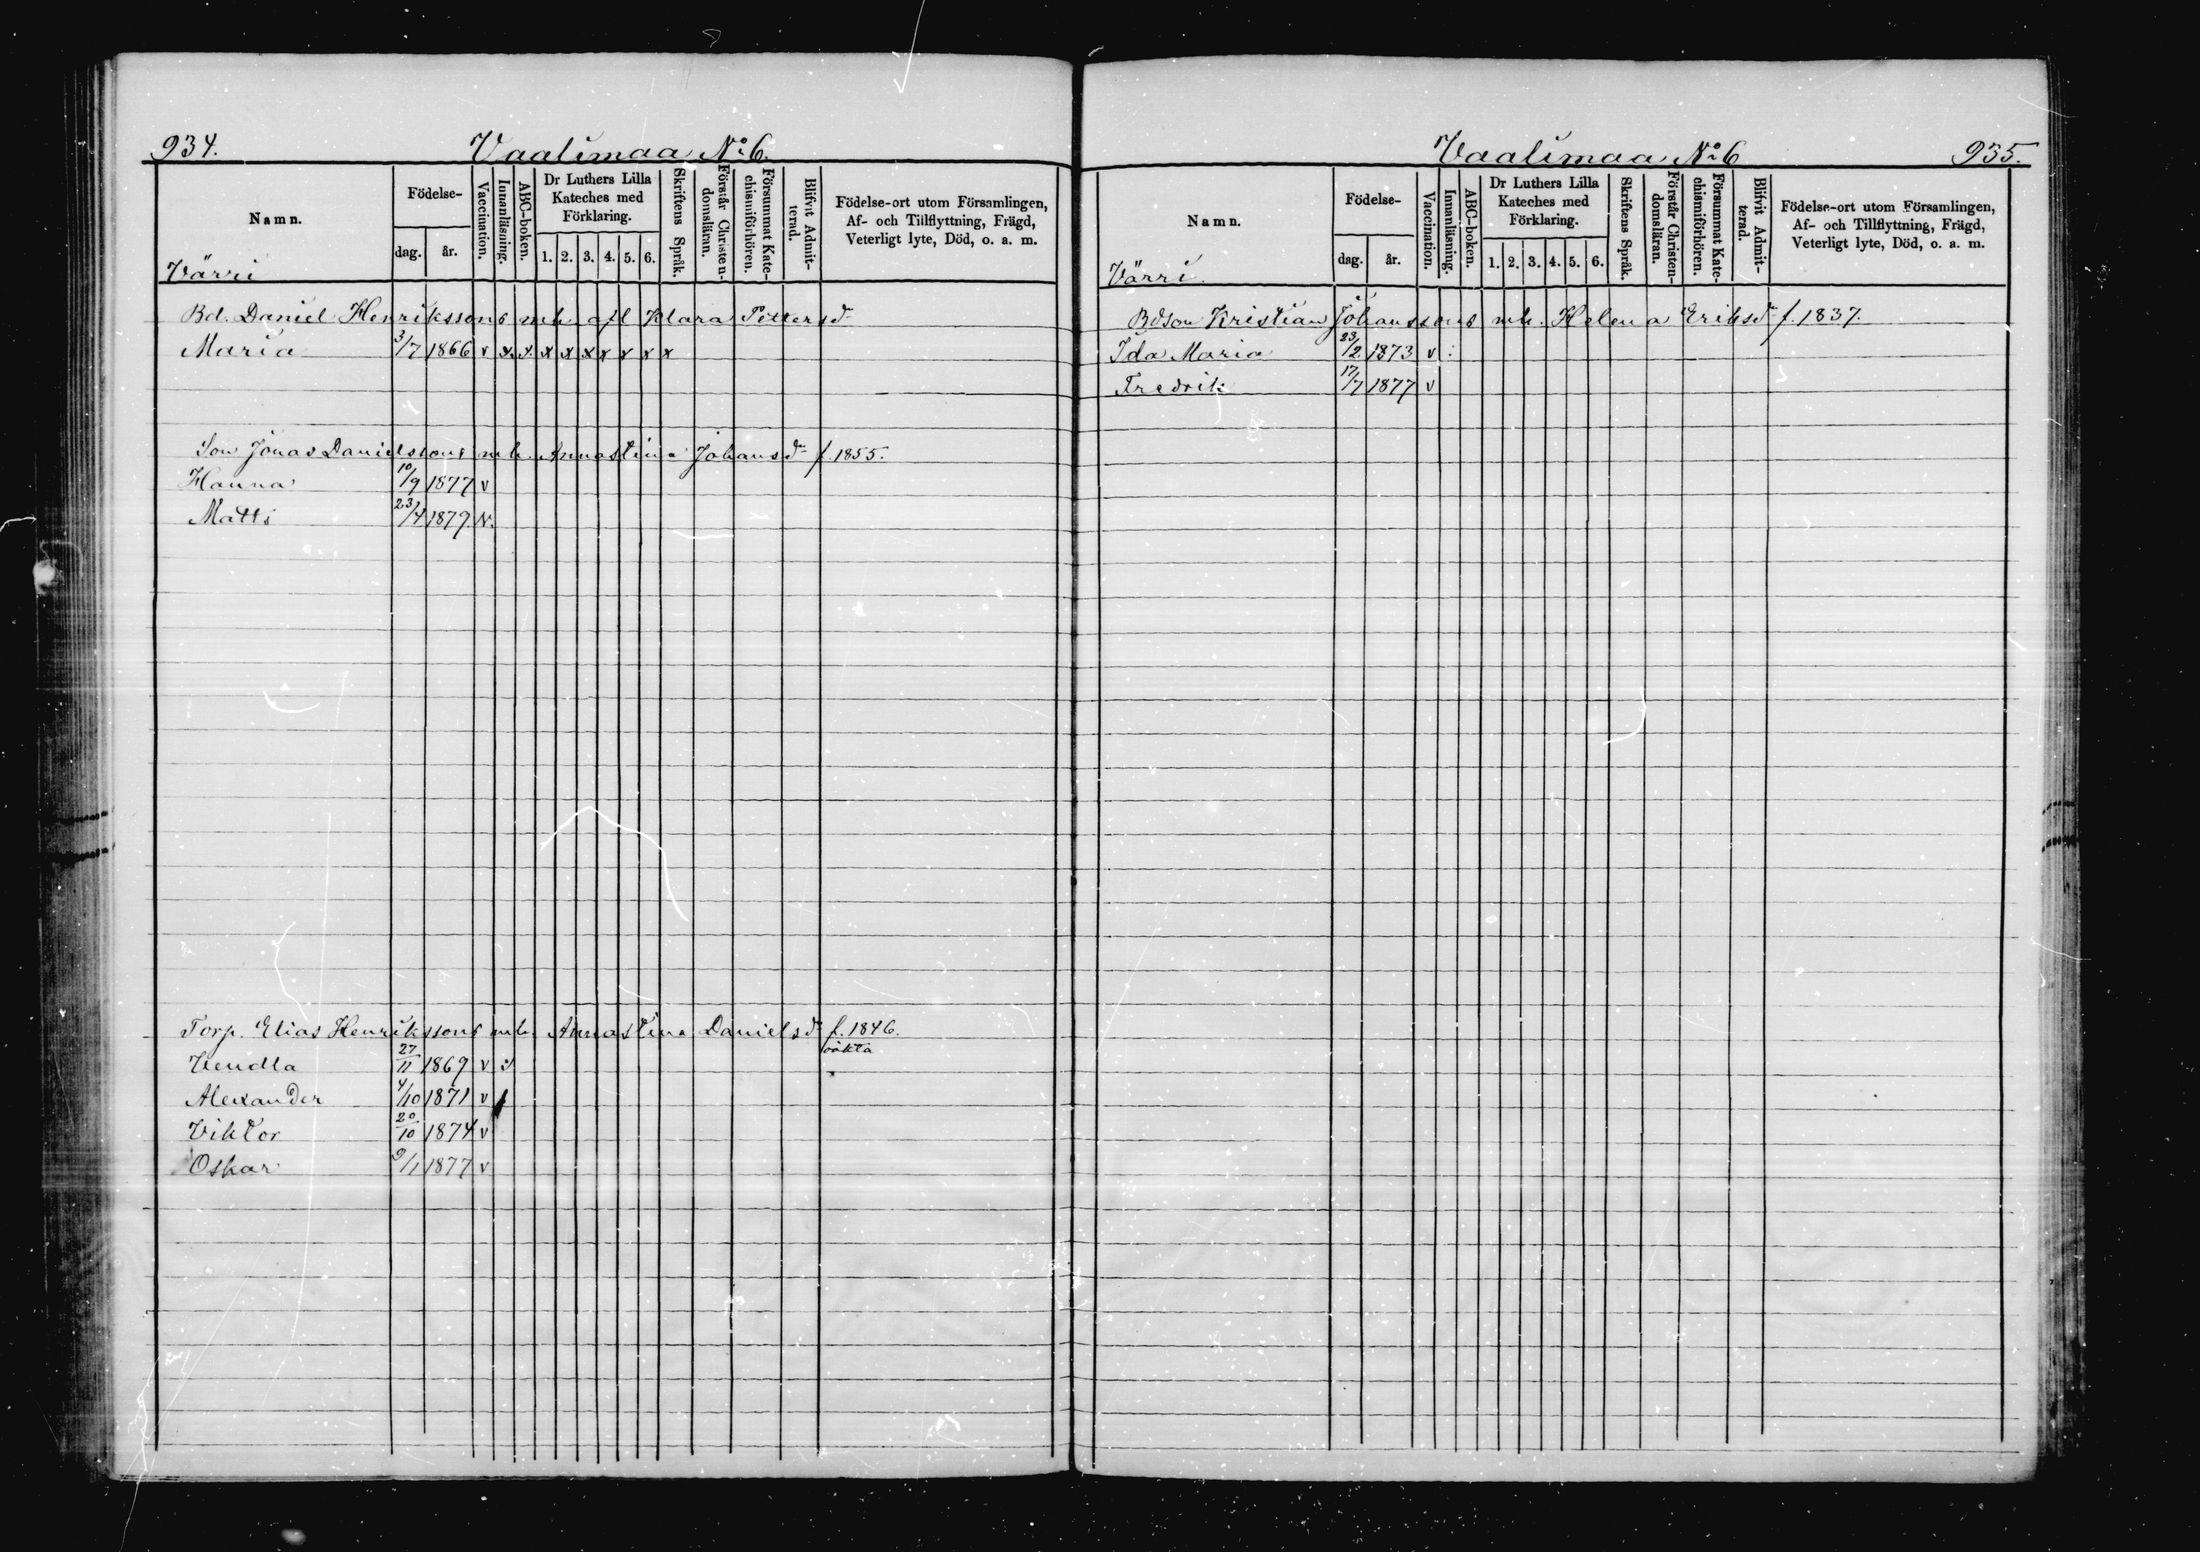 934. Vaalimaa No 6.
Namn. Födelse- dag. år. Vaccination. Innanläsning. ABC-boken. Dr Luthers Lilla Kateches med Förklaring. 1. 2. 3. 4. 5. 6. Skriftens Språk. Förstår Christendomsläran. Försummat Katechismiförhören. Blifvit Admitterad. Födelse-ort utom Församlingen, Af- och Tillflyttning, Frägd, Veterligt lyte, Död, o. a. m.
Värri
Bd. Daniel Henrikssons mh. afl Klara Pettersd
Maria 3/7 1866 v x x x x x x x x x
Son Jonas Danielssons mh. Annastina Johansd f. 1855.
Hanna 10/9 1877 v
Matts 23/4 1879 v.
Torp. Elias Henrikssons mh. Annastina Danielsd f. 1846.
oäkta
Vendla 27/11 1869 v
Alexander 4/10 1871 v
Viktor 20/10 1874 v
Oskar 9/1 1877 v
Vaalimaa No 6 935.
Namn. Födelse- dag. år. Vaccination. Innanläsning. ABC-boken. Dr Luthers Lilla Kateches med Förklaring. 1. 2. 3. 4. 5. 6. Skriftens Språk. Förstår Christendomsläran. Försummat Katechismiförhören. Blifvit Admitterad. Födelse-ort utom Församlingen, Af- och Tillflyttning, Frägd, Veterligt lyte, Död, o. a. m.
Värri.
Bdson Kristian Johanssons mh. Helena Eriksd f. 1837.
Ida Maria 23/2 1873 v :
Fredrik 17/7 1877 v